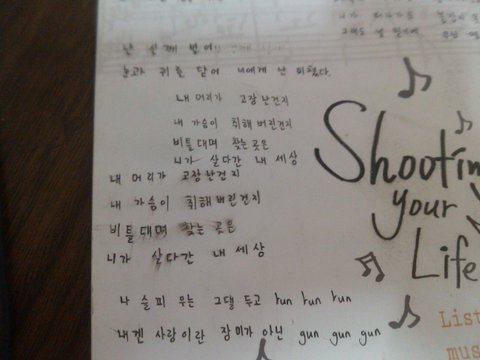 니가
눈과 귀를 닫어 너에게 난 미쳤다.
내 머리가 고장난건지
내 가슴이 취해버린건지
비틀대며 찾는곳은
니가 살다간 내 세상
내 머리가 고장난건지
내 가슴이 취해버린건지
비틀대며 찾는 곳은
니가 살다간 내 세상
나 슬피 우는 그댈 두고 run run run
내겐 사랑이란 장미가 아닌 gun gun gun
Shootin
your
Life
List
mus